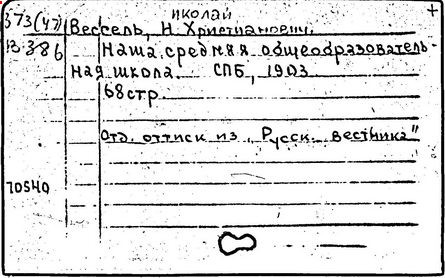 иколай +
373(47) Вессель, Н. Христианович.
В 386 Наша средняя общеобразователь-
ная школа. СПБ, 1903
68стр.
Отд. оттиск из „Русск. вестника"
70540